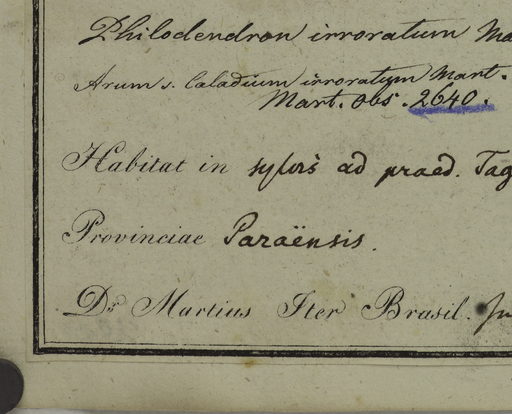 Philodendron irroratum Ma
Arum s. Caladium irroratum Mart.
Mart. obs. 2640.
Habitat in sylvis ad praed. Tag
Provinciae Paraënsis.
Dr. Martius Iter Brasil.